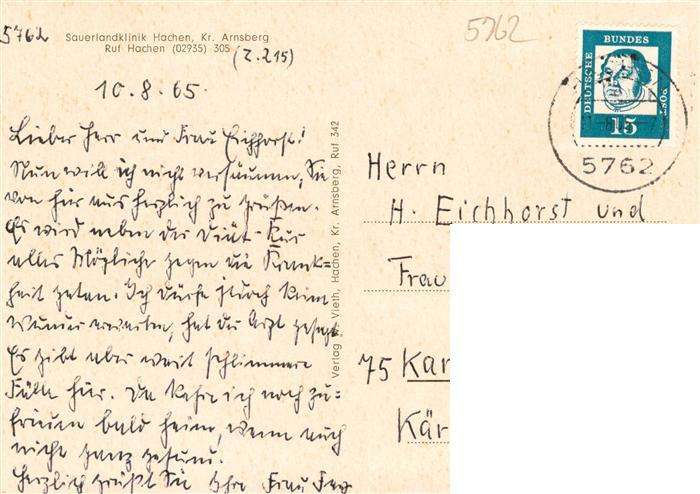 5762
Sauerlandklinik Hachen, Kr. Arnsberg
Ruf Hachen (02935) 305
(Z. 215)
10.8.65.
Lieber Herr und Frau Eichhorst!
Nun will ich nicht versäumen, Sie
von hier aus herzlich zu grüßen.
Es wird neben der Diät-Kur
alles Mögliche gegen die Krank=
heit getan. Ich dürfe jedoch kein
Wunder erwarten, hat der Arzt gesagt.
Es gibt aber weit schlimmere
Fälle hier. Da kehre ich noch zu=
frieden bald heim, wenn auch
nicht ganz gesund.
Herzlich grüßt Sie Ihre Frau
Verlag Vieth, Hachen, Kr. Arnsberg, Ruf 342
5762
DEUTSCHE BUNDES POST
15
5762
Herrn
H. Eichhorst und
Frau
75 Kar
Kär